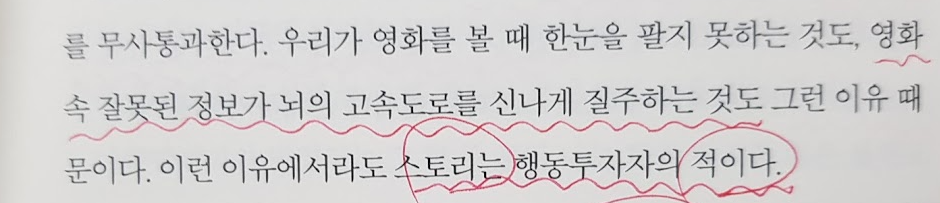 를 무사통과한다. 우리가 영화를 볼 때 한눈을 팔지 못하는 것도, 영화
속 잘못된 정보가 뇌의 고속도로를 신나게 질주하는 것도 그런 이유 때
문이다. 이런 이유에서라도 스토리는 행동투자자의 적이다.